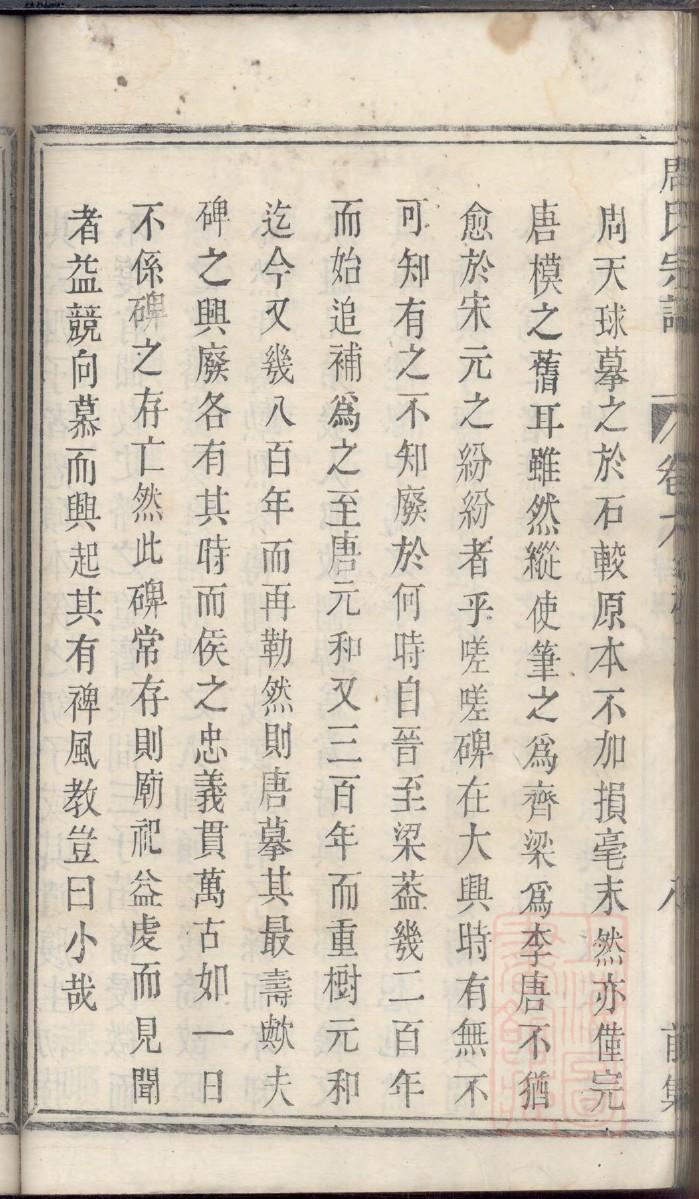 周氏宗譜 卷六 八 前集
周天球摹之於石較原本不加損毫末然亦僅完
唐模之舊耳雖然縱使筆之爲齊梁爲李唐不猶
愈於宋元之紛紛者乎嗟嗟碑在大興時有無不
可知有之不知廢於何時自晉至梁葢幾二百年
而始追補爲之至唐元和又三百年而重樹元和
迄今又幾八百年而再勒然則唐摹其最壽歟夫
碑之興廢各有其時而侯之忠義貫萬古如一日
不係碑之存亡然此碑常存則廟祀益虔而見聞
者益競向慕而興起其有裨風教豈曰小哉